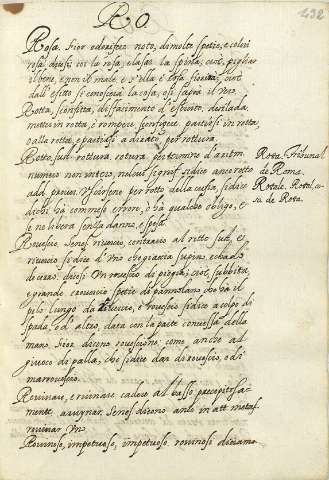 RO
432
Rosa, fior odorifero noto, di molte spetie, e colori
rosa, dicesi coi la rosa, e lasar la spina, cioè, pigliar
il bene, e non il male. e s'ella è rosa fiorirà, cioè
dall'esito si conoscerà la cosa, o si saprà il vero.
Rotta, sconfitta, disfacimento d'esercito, derilada,
metter in rotta, è rompere, sconfiggere, partirsi in rotta,
o alla rotta, è partirsi adirato, per rottura.
Rotto, sust. rottura, rotura, per termine d'aritm.
numero non intero, nel uil. signif. udire ancor rotto
add. Uscirsene per rotto della cuffia, si dice
di chi ha commesso errore, o ha qualche obligo, e
se ne libera senza danno, e spesa.
Rota, Tribunal
de Roma.
Rotale, Rotal, co-
sa de Rota.
Rovescio, Senes. riverscio, contrario al ritto, sust., e
riverscio si dice d'uno che giaccia supino, e chado
di uras. dicesi un rovescio di pioggia, cioè, subbita,
e grande. rovescio spetie di pannolano che ha il
pelo lungo da riverscio, e rovescio si dice a colpo di
spada, od altro, data con la parte convessa della
mano. Fior. dicono rovescione, come anche al
giuoco di palla, che si dice dar di rovescio, o di
marrovescio.
Rovinare, e ruinare cadere al basso precipitosa-
mente, arruynar. Senes. dicono anco in att. metaf.
rovinar uno.
Rovinoso, impetuoso, impetuoso. rovinosi diciamo